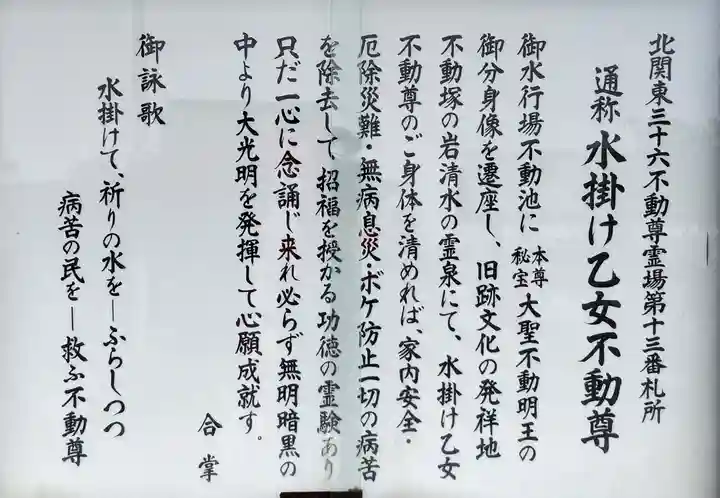 北関東三十六不動尊霊場第十三番札所
通称 水掛け乙女不動尊
御水行場不動池に 本尊秘宝 大聖不動明王の
御分身像を遷座し、旧跡文化の発祥地
不動塚の岩清水の霊泉にて、水掛け乙女
不動尊のご身体を清めれば、家内安全・
厄除災難・無病息災・ボケ防止一切の病苦
を除去して招福を授かる功徳の霊験あり
只だ一心に念誦じ来れ必らず無明暗黒の
中より大光明を発揮して心願成就す。
合掌
御詠歌
水掛けて、祈りの水を―ふらしつつ
病苦の民を―救ふ不動尊